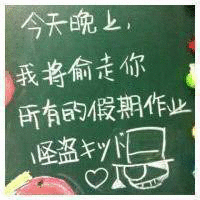 今天晚上，
我将偷走你
所有的假期作业
怪盗キッド